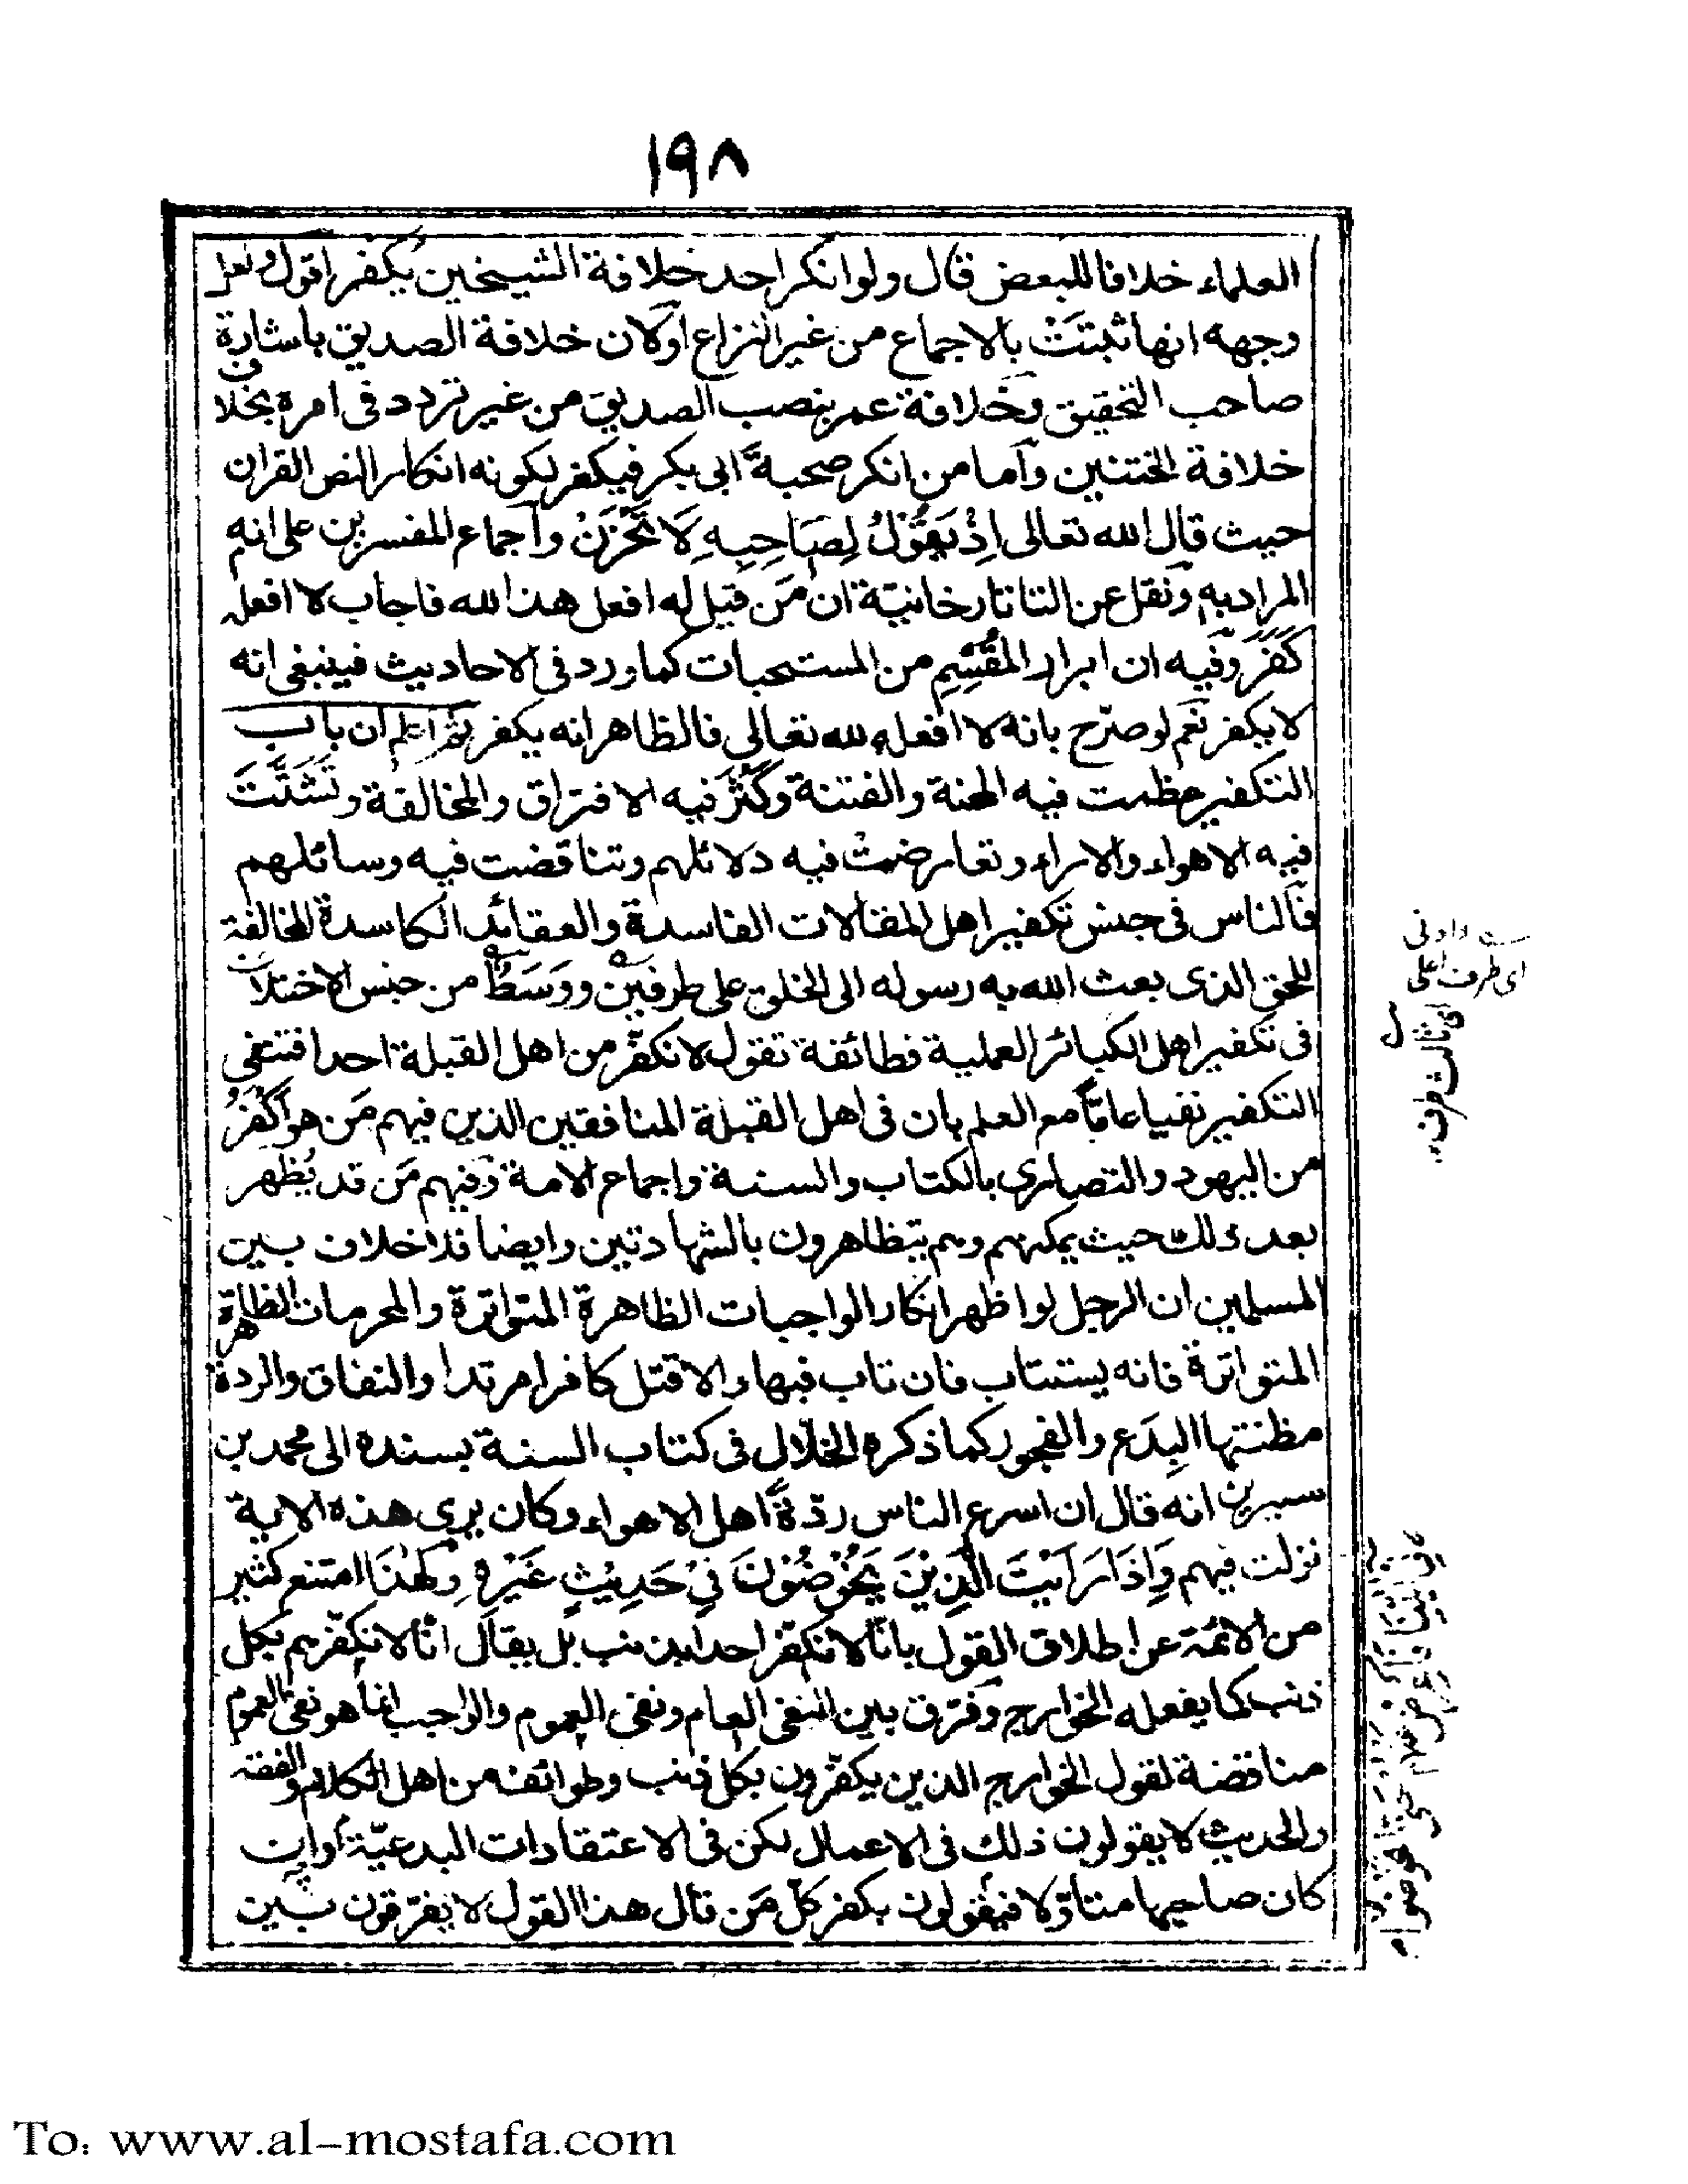 ١٩٨
العلماء خلافا للبعض قال ولو انكر احد خلافة الشيخين يكفر اقول ولعل
وجهه انها ثبتت بالاجماع من غير النزاع او كان خلافة الصديق باشارة
صاحب التحقيق وخلافة عمر بنصب الصديق من غير تردد فى امره بخلاف
خلافة الختنين واما من انكر صحبة ابى بكر فيكفر لكونه انكار النص القران
حيث قال الله تعالى اِذْ يَقُوْلُ لِصَاحِبِهِ لَا تَحْزَنْ واجماع المفسرين على انه
المراد به ونقل عن التاتارخانيّة ان مَن قيل له افعل هذا لله فاجاب لا افعله
كَفَرَ وفيه ان ابرار المُقْسِمِ من المستحبات كما ورد فى الاحاديث فينبغى انه
لا يكفر نعم لو صرّح بانه لا افعله لله تعالى فالظاهر انه يكفر ثم اعلم ان باب
التكفير عظمت فيه المحنة والفتنة وكَثُرَ فيه الافتراق والمخالفة وتَشَتَّتَ
فيه الاهواء والاراء وتعارضت فيه دلائلهم وتناقضت فيه وسائلهم
فالناس فى جنس تكفير اهل المقالات الفاسدة والعقائد الكاسدة المخالفة
للحق الذى بعث الله به رسوله الى الخلق على طرفين ووَسَطٌ من جنس الاختلاف
فى تكفير اهل الكبائر العملية فطائفة تقول لا نكفّر من اهل القبلة احدا فتنفى
التكفير نفيا عامّا مع العلم بان فى اهل القبلة المنافقين الذين فيهم مَن هو اَكْفَرُ
من اليهود والنصارى بالكتاب والسنة واجماع الامة وفيهم مَن قد يُظهر
بعد ذلك حيث يمكنهم وهم يتظاهرون بالشهادتين وايضا فلا خلاف بين
المسلمين ان الرجل لو اظهر انكار الواجبات الظاهرة المتواترة والمحرمات الظاهرة
المتواترة فانه يستتاب فان تاب فبها والا قتل كافرا مرتدا والنفاق والردة
مظنتها البِدَع والفجور كما ذكره الخلّال فى كتاب السنة بسنده الى محمد بن
سيرين انه قال ان اسرع الناس ردّةً اهل الاهواء وكان يرى هذه الاية
نزلت فيهم وَاِذَا رَاَيْتَ الَّذِيْنَ يَخُوْضُوْنَ فِىْ حَدِيْثٍ غَيْرِهِ ولهٰذَا امتنع كثير
من الائمة عن اطلاق القول بانّا لا نكفّر احدا بذنب بل يقال انّا لا نكفّرهم بكل
ذنب كما يفعله الخوارج وفرّق بين النفى العام ونفى العموم والواجب انما هو نفى العموم
مناقضة لقول الخوارج الذين يكفّرون بكل ذنب وطوائف من اهل الكلام والفقه
والحديث لا يقولون ذلك فى الاعمال لكن فى الاعتقادات البدعيّة وان
كان صاحبها متاوّلا فيقولون بكفر كلّ مَن قال هذا القول لا يفرّقون بين
اى طرف اعلى
وادنى
اى ثالث طرف
To: www.al-mostafa.com